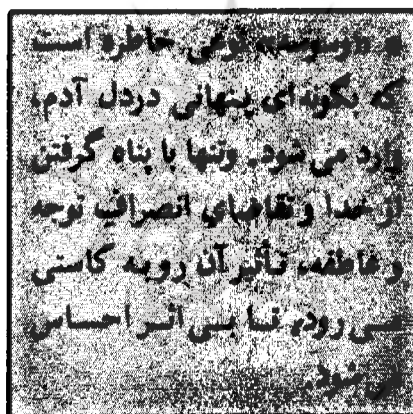 وسوسه، نوعی خاطره است
که بگونه‌ای پنهانی در دل آدم،
وارد می‌شود. وتنها با پناه گرفتن
از خدا و تقاضای انصراف توجه
و عاطفه، تأثیر آن رو به کاستی
می‌رود، تا بی اثر احساس
می‌شود.